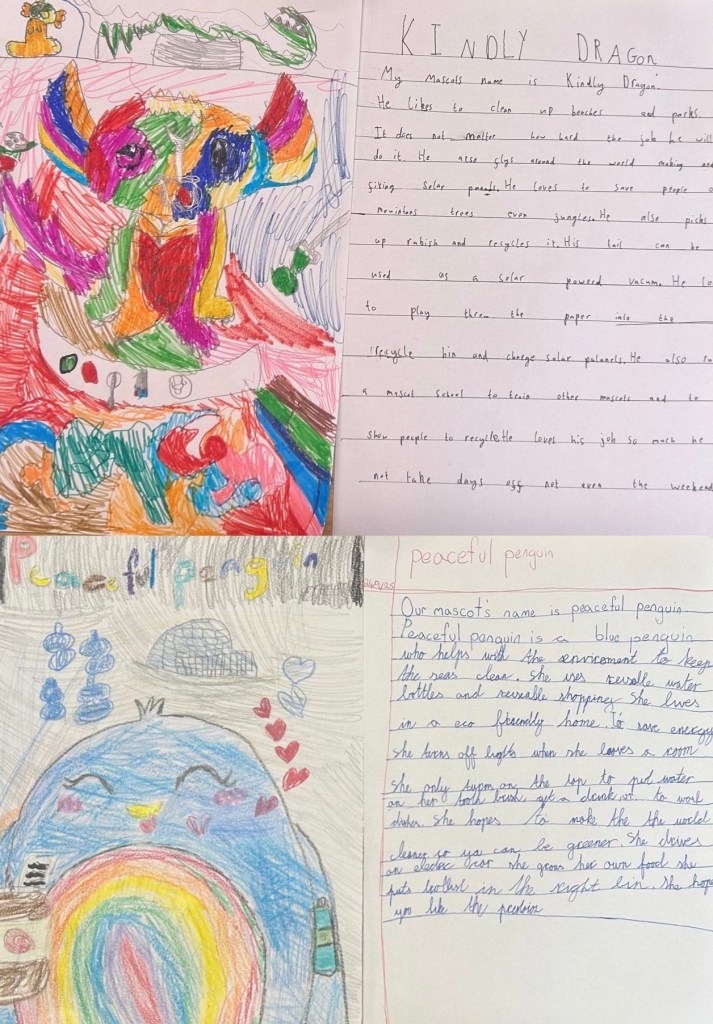 KINDLY DRAGON
My Mascots name is Kindly Dragon.
He likes to clean up beaches and parks.
It does not matter how hard the job he will
do it. He also flys around the world making and
fixing solar He loves to save people
mountans trees even jungles. He also picks
up rubish and recycles it. His tail can be
used as a solar powered vacum. He
to play the paper into the
recycle bin and charge solar He also
a mascot school to train other mascots and to
show people to recycle. He loves his job so much he
not take days off not even the
Peaceful penguin
peaceful penguin
Our mascot's name is peaceful penguin.
Peaceful penguin is a blue penguin
who helps with the to keep
the seas clean. She uses water
bottles and shopping She lives
in a eco home. To save energy
she turns off lights when she a room
She only on the tap to put water
on her tooth brush, get a drink, or to
dishes. She hopes to make the the world
cleaner so ya can be greener. She drives
an car she grows her own food she
puts in the right bin. She
you like the